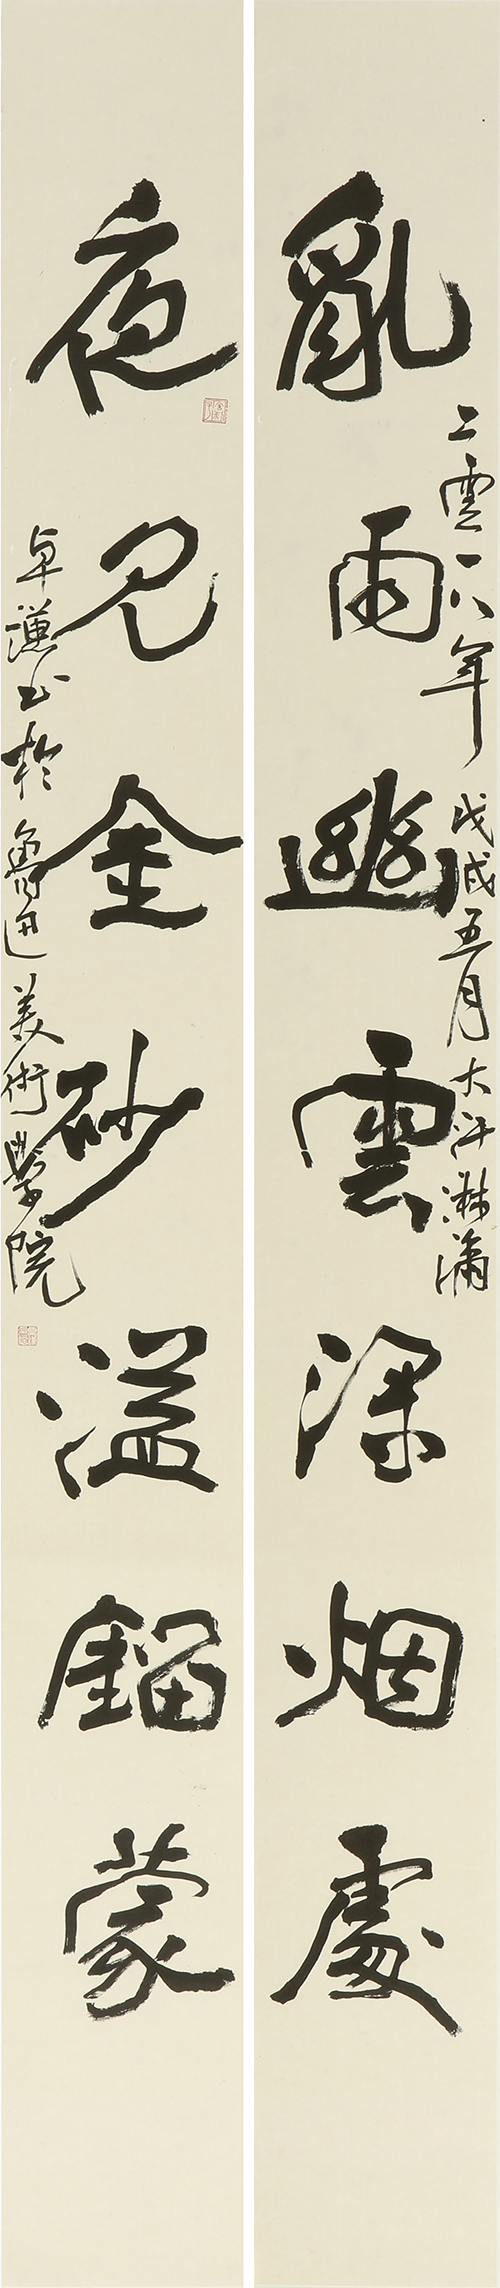 亂雨幽雲深烟處
二零一八年戊戌五月大汗淋漓
夜見金砂溢錙蒙
卓謙书於魯迅美術學院